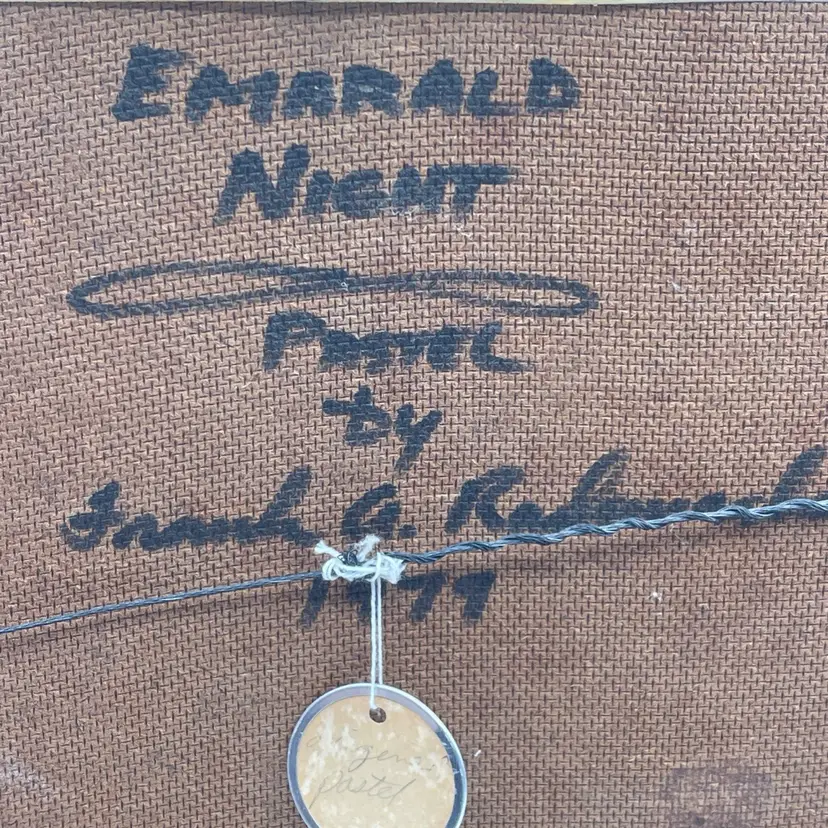 EMARALD
NIGHT
PASTEL
by
Frank A.
1979
pastel